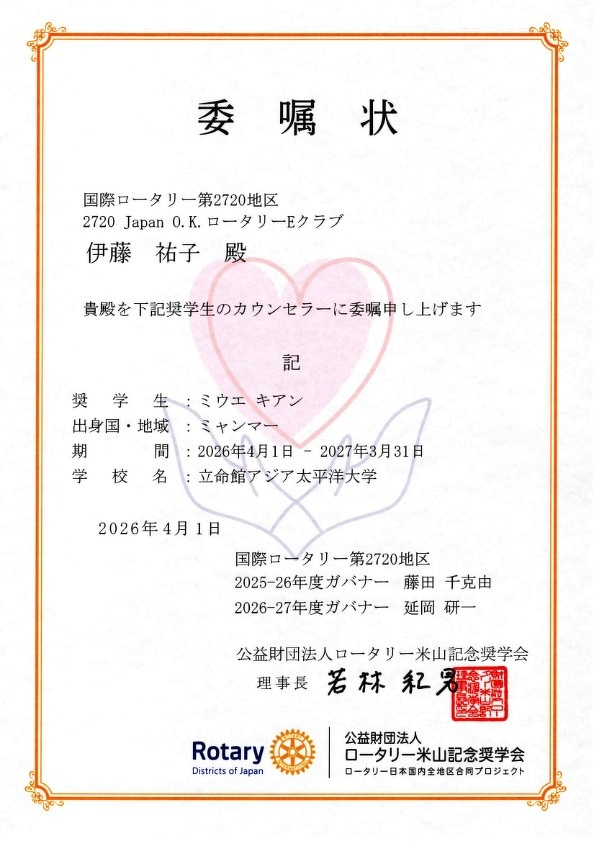 委嘱状
国際ロータリー第2720地区
2720 Japan O.K.ロータリーEクラブ
伊藤 祐子 殿
貴殿を下記奨学生のカウンセラーに委嘱申し上げます
記
奨学生：ミウエ キアン
出身国・地域：ミャンマー
期間：2026年4月1日 - 2027年3月31日
学校名：立命館アジア太平洋大学
2026年4月1日
国際ロータリー第2720地区
2025-26年度ガバナー 藤田 千克由
2026-27年度ガバナー 延岡 研一
公益財団法人ロータリー米山記念奨学会
理事長 若林 紀男
Rotary
Districts of Japan
公益財団法人
ロータリー米山記念奨学会
ロータリー日本国内全地区合同プロジェクト